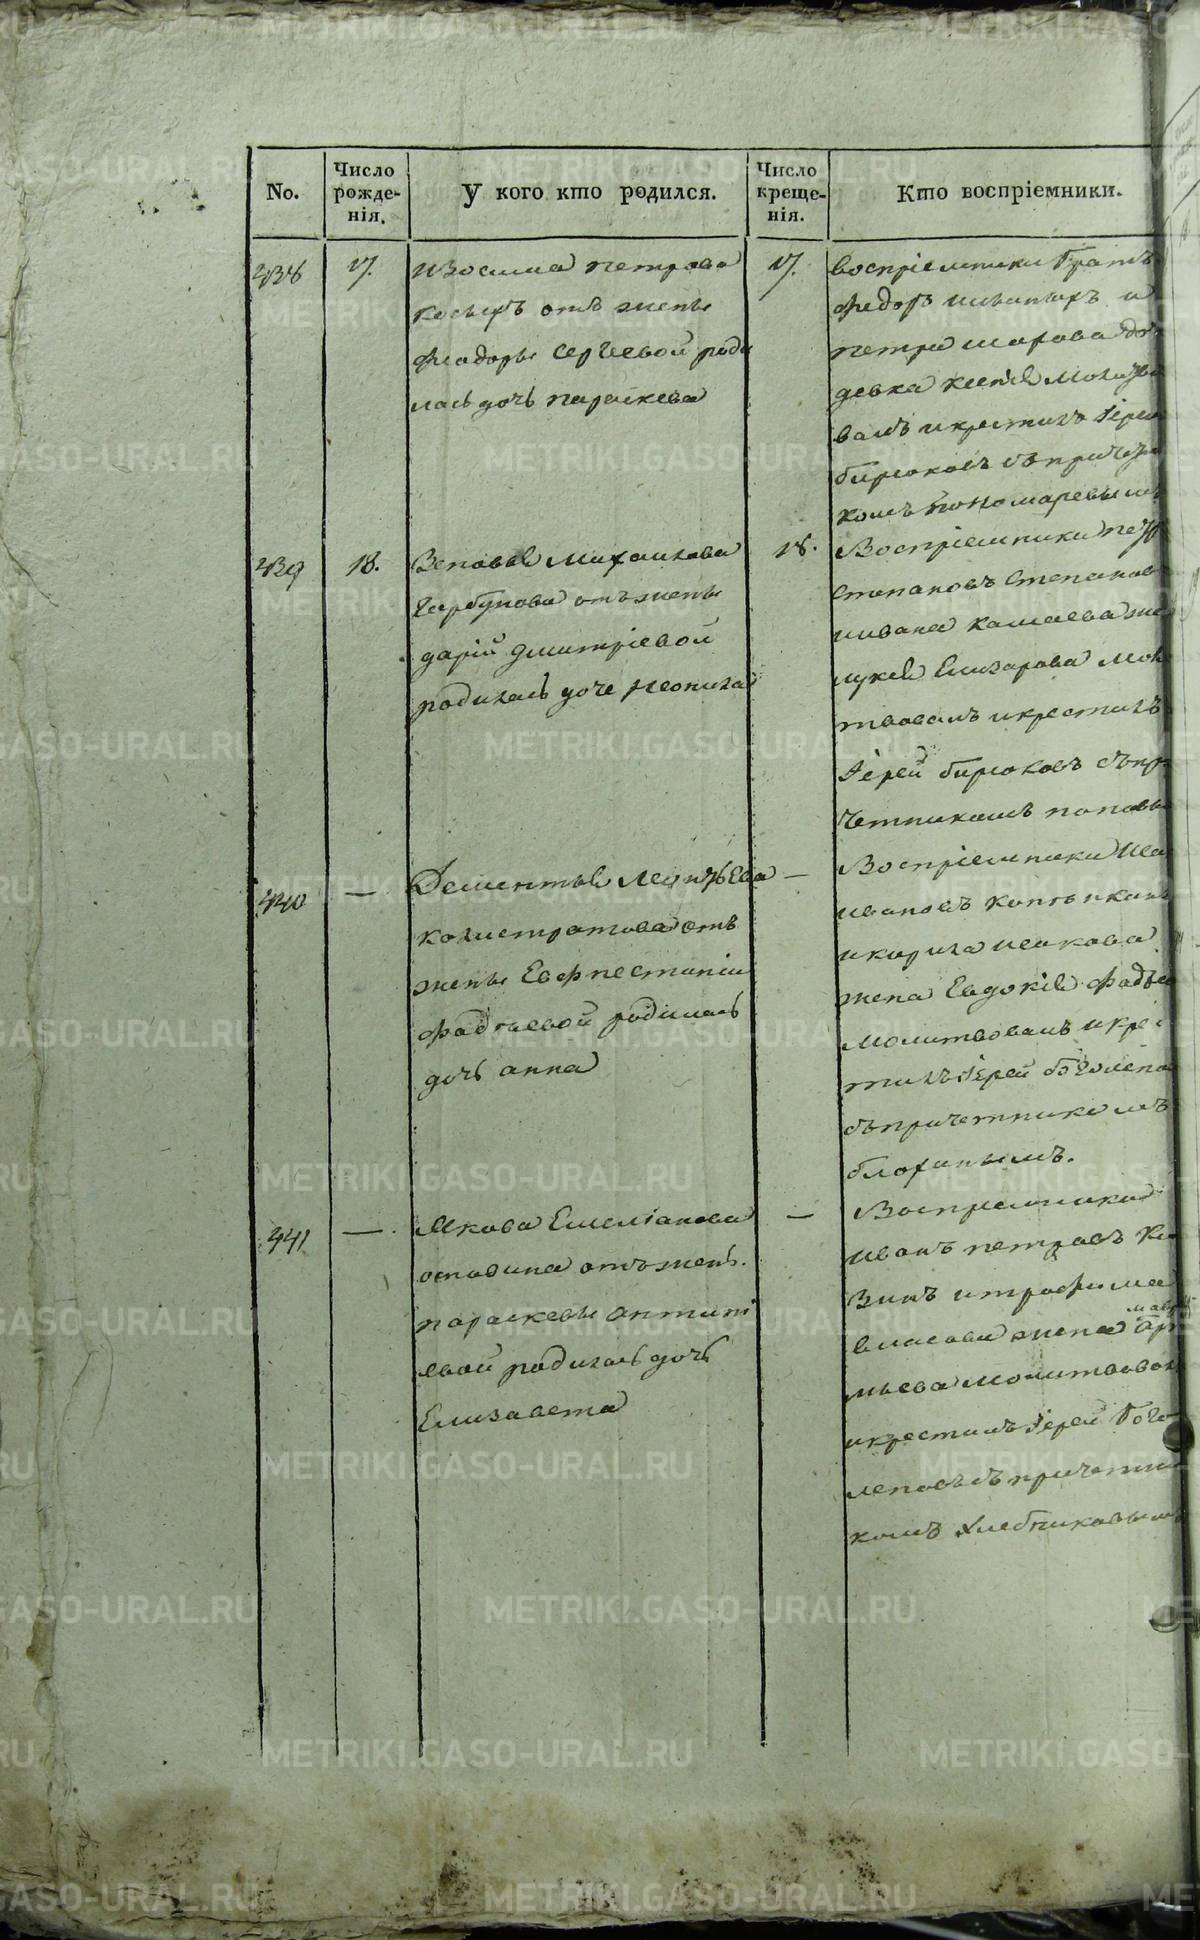 No.
Число рожде-нія.
У кого кто родился.
Число креще-нія.
Кто воспріемники.
438
17.
Изосима петрова
косыхъ отъ жены
феодоры сергѣевой роди
лась дочь параскева
17.
воспріемники братъ
федоръ
петра
девка
валъ и крестилъ Іерей
бирюковъ съ причетни
комъ пономаревымъ
439
18.
Зеновья Михаилова
Горбунова отъ жены
дарьи дмитріевой
родилась дочь неонила
18.
Воспріемники петръ
степановъ степанов
и ивана камаева же
лукья Елизарова моли
твовалъ и крестилъ
Іерей бирюковъ съ при
четникомъ поповы
440
—
Дементья Леонтьева
калистратова отъ
жены Евфпестиніи
фадѣевой родилась
дочь анна
—
Воспріемники
ивановъ
и кирила исакова
жена Евдокія фадѣе
молитвовалъ и крес
тилъ Іерей боголепо
съ причетникомъ
блохинымъ.
441
—
Якова Емеліанова
отъ жены
параскевы антипі
евой родилась дочь
Елизавета
—
Воспріемники
иванъ петровъ
зинъ и трофима
власова жена
мав
мьева молитвовал
и крестилъ Іерей Бого
леповъ съ причетни
комъ хлебниковымъ
METRIKI.GASO-URAL.RU